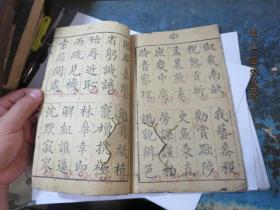 中
俶載南畝我藝黍稷
稅熟貢新勸賞黜陟
孟軻敦素史魚秉直
庶幾中庸勞謙謹勑
聆音察理鑑貌辨色
貽厥嘉猷勉其祗植
省躬譏誡寵增抗極
殆辱近恥林皋幸即
兩疏見機解組誰逼
索居閒處沈默寂寥